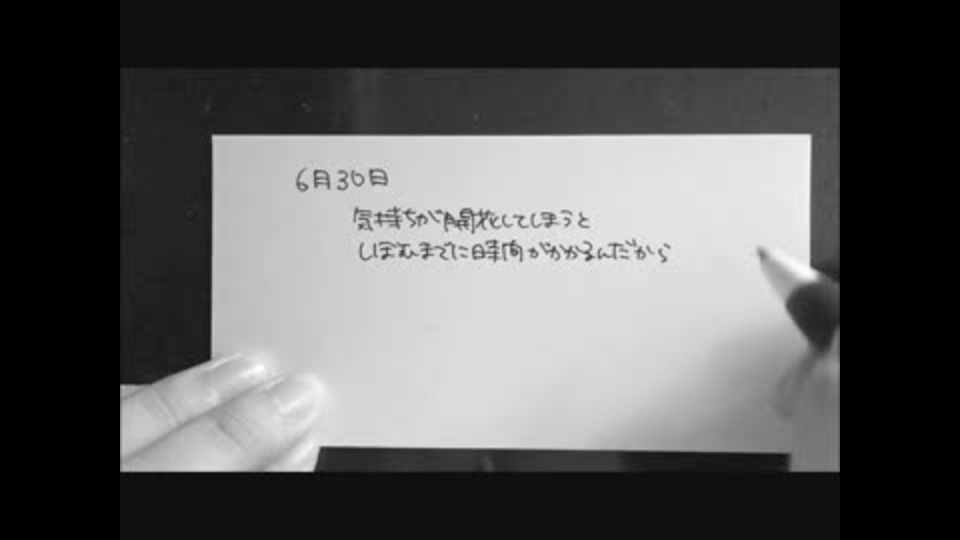 6月30日
気持ちが開花してしまうと
しぼむまでに時間がかかるんだから